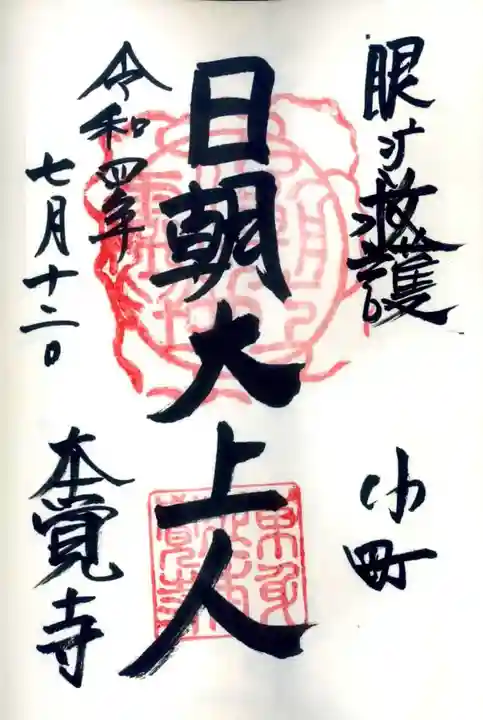 眼病救護
小町
日朝大上人
令和四年
七月十二日
本覺寺